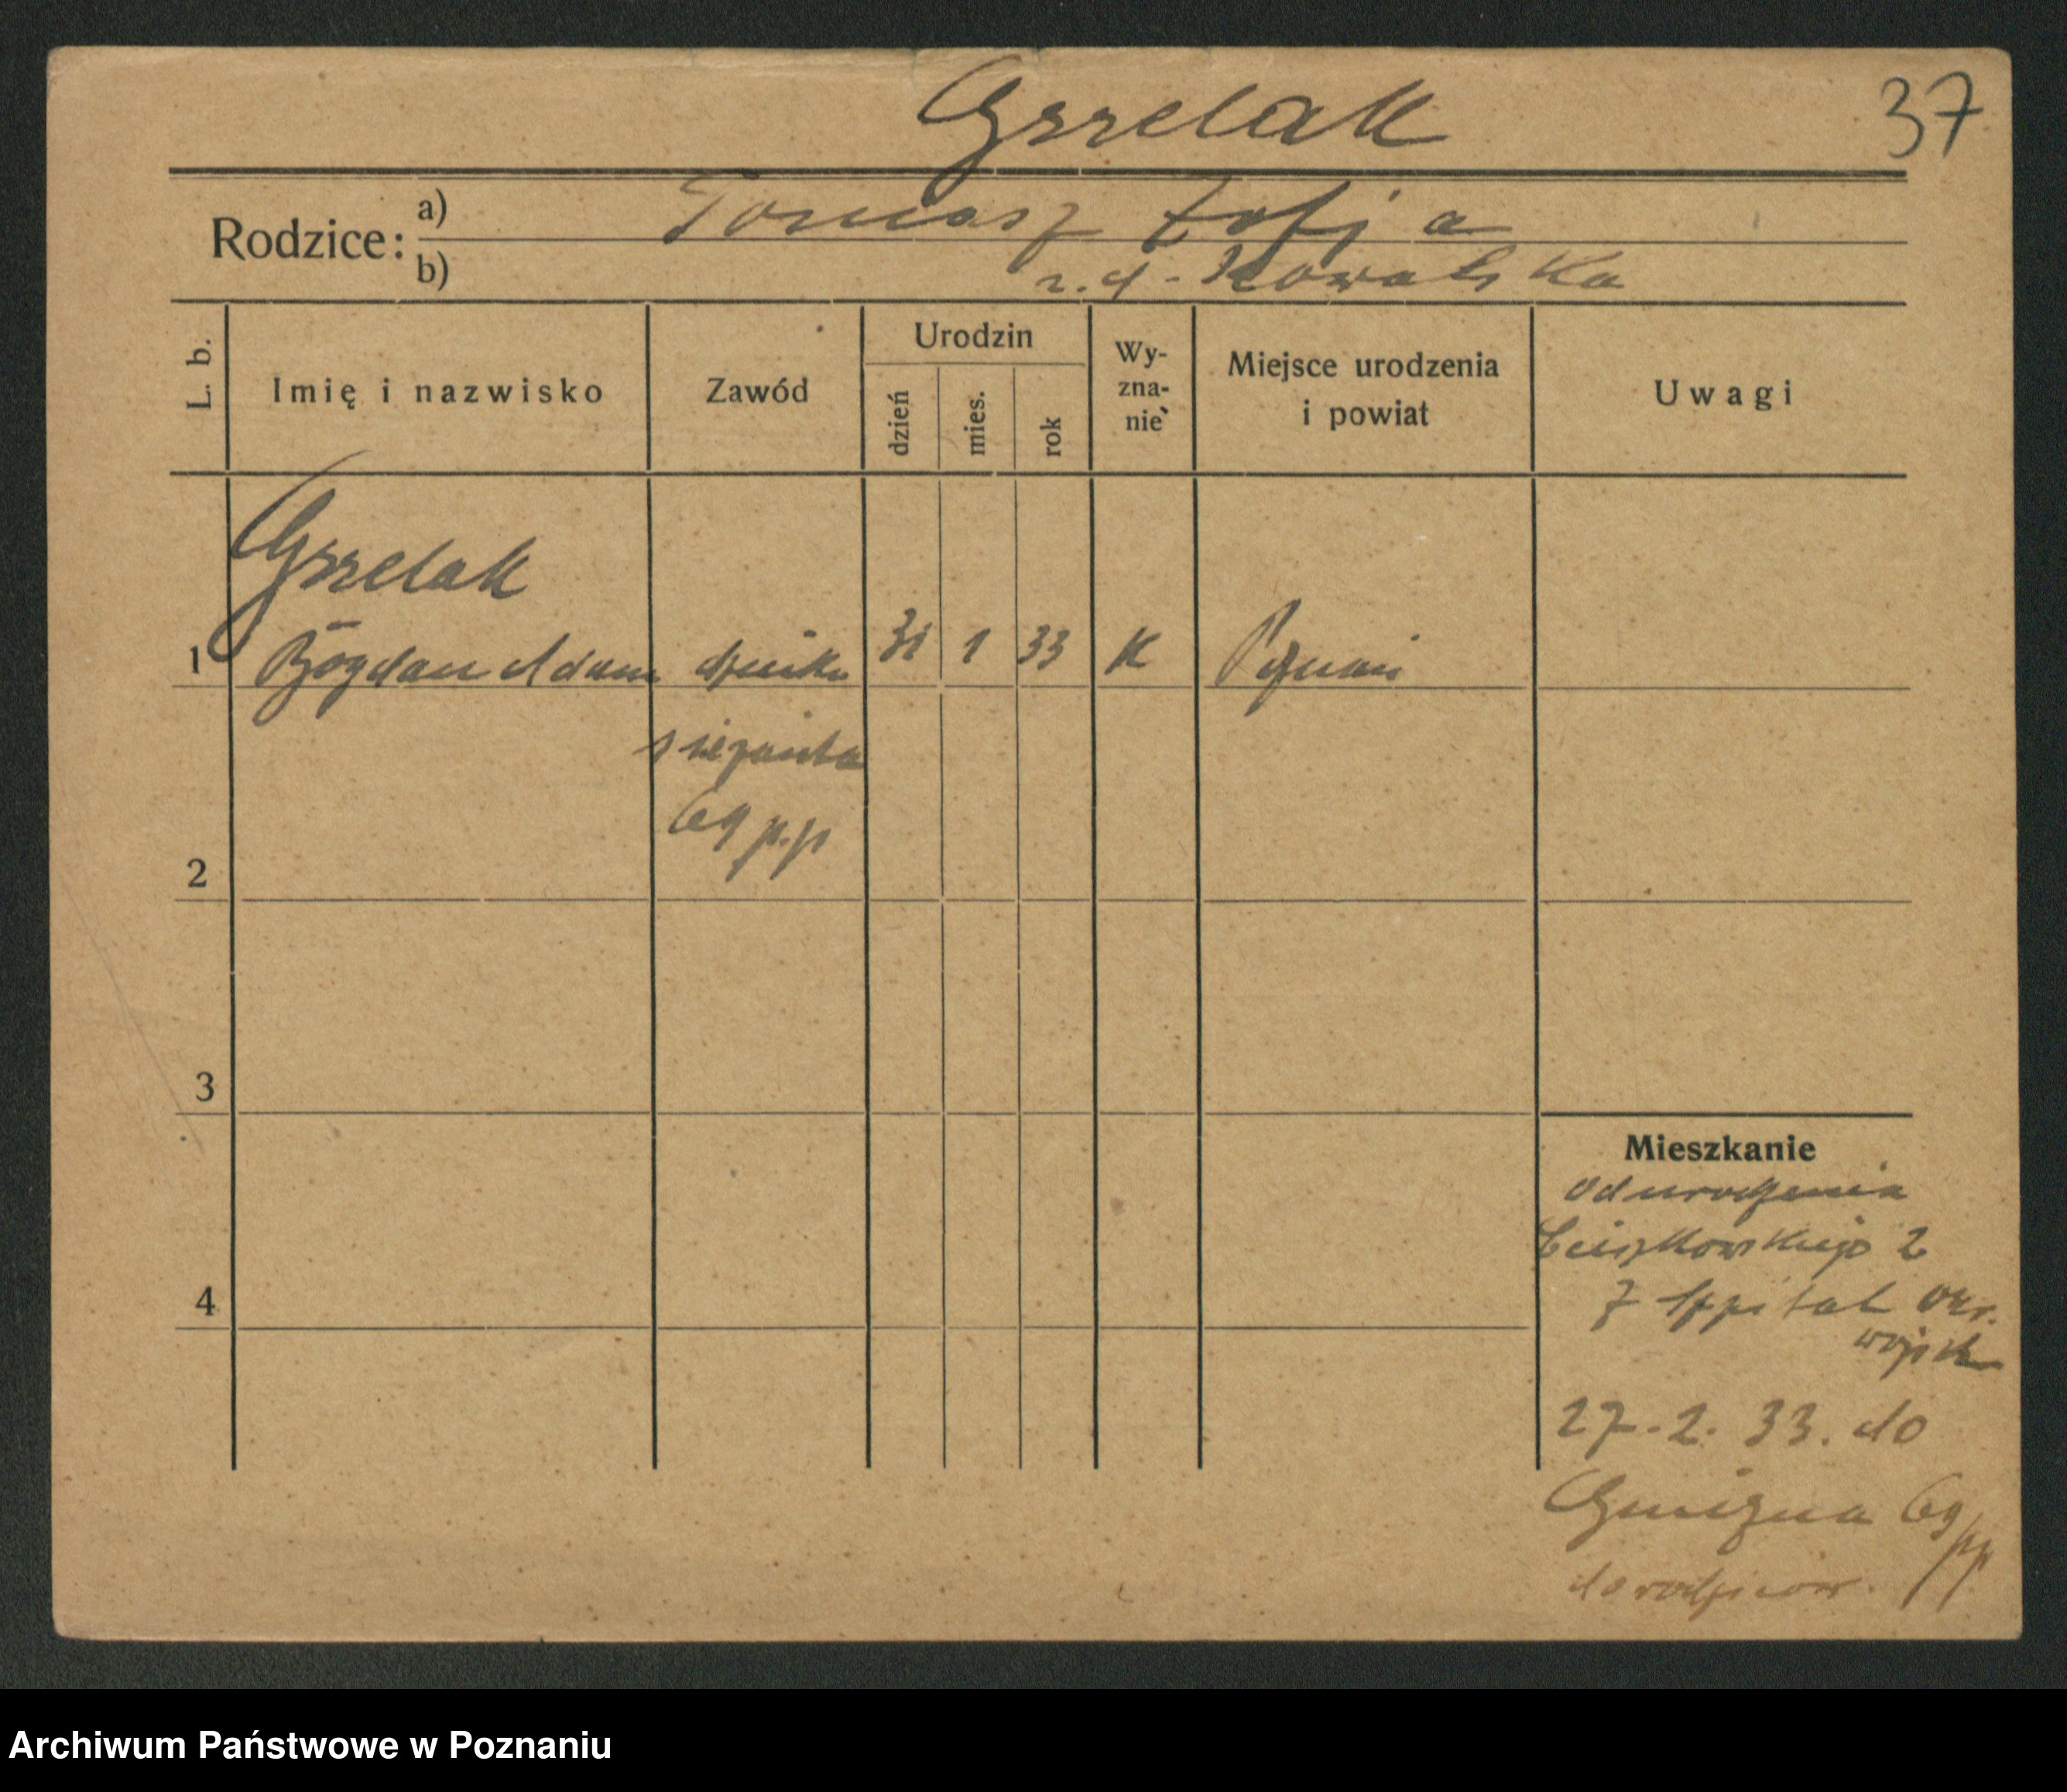 Grzelak
37
Rodzice:
a) Tomasz Zofja
b) z.d. Kowalska
L. b.
Imię i nazwisko
Zawód
Urodzin
dzień
mies.
rok
Wy-
zna-
nie
Miejsce urodzenia
i powiat
Uwagi
Grzelak
1 Bogdan Adam dziecko 31 1 33 K Poznań
sierżanta
69 p.p
2
3
4
Mieszkanie
od urodzenia
Cieszkowskiego 2
7 Szpital Okr.
wojsk
27.2.33. do
Gniezna 69 pp
do rodziców.
Archiwum Państwowe w Poznaniu